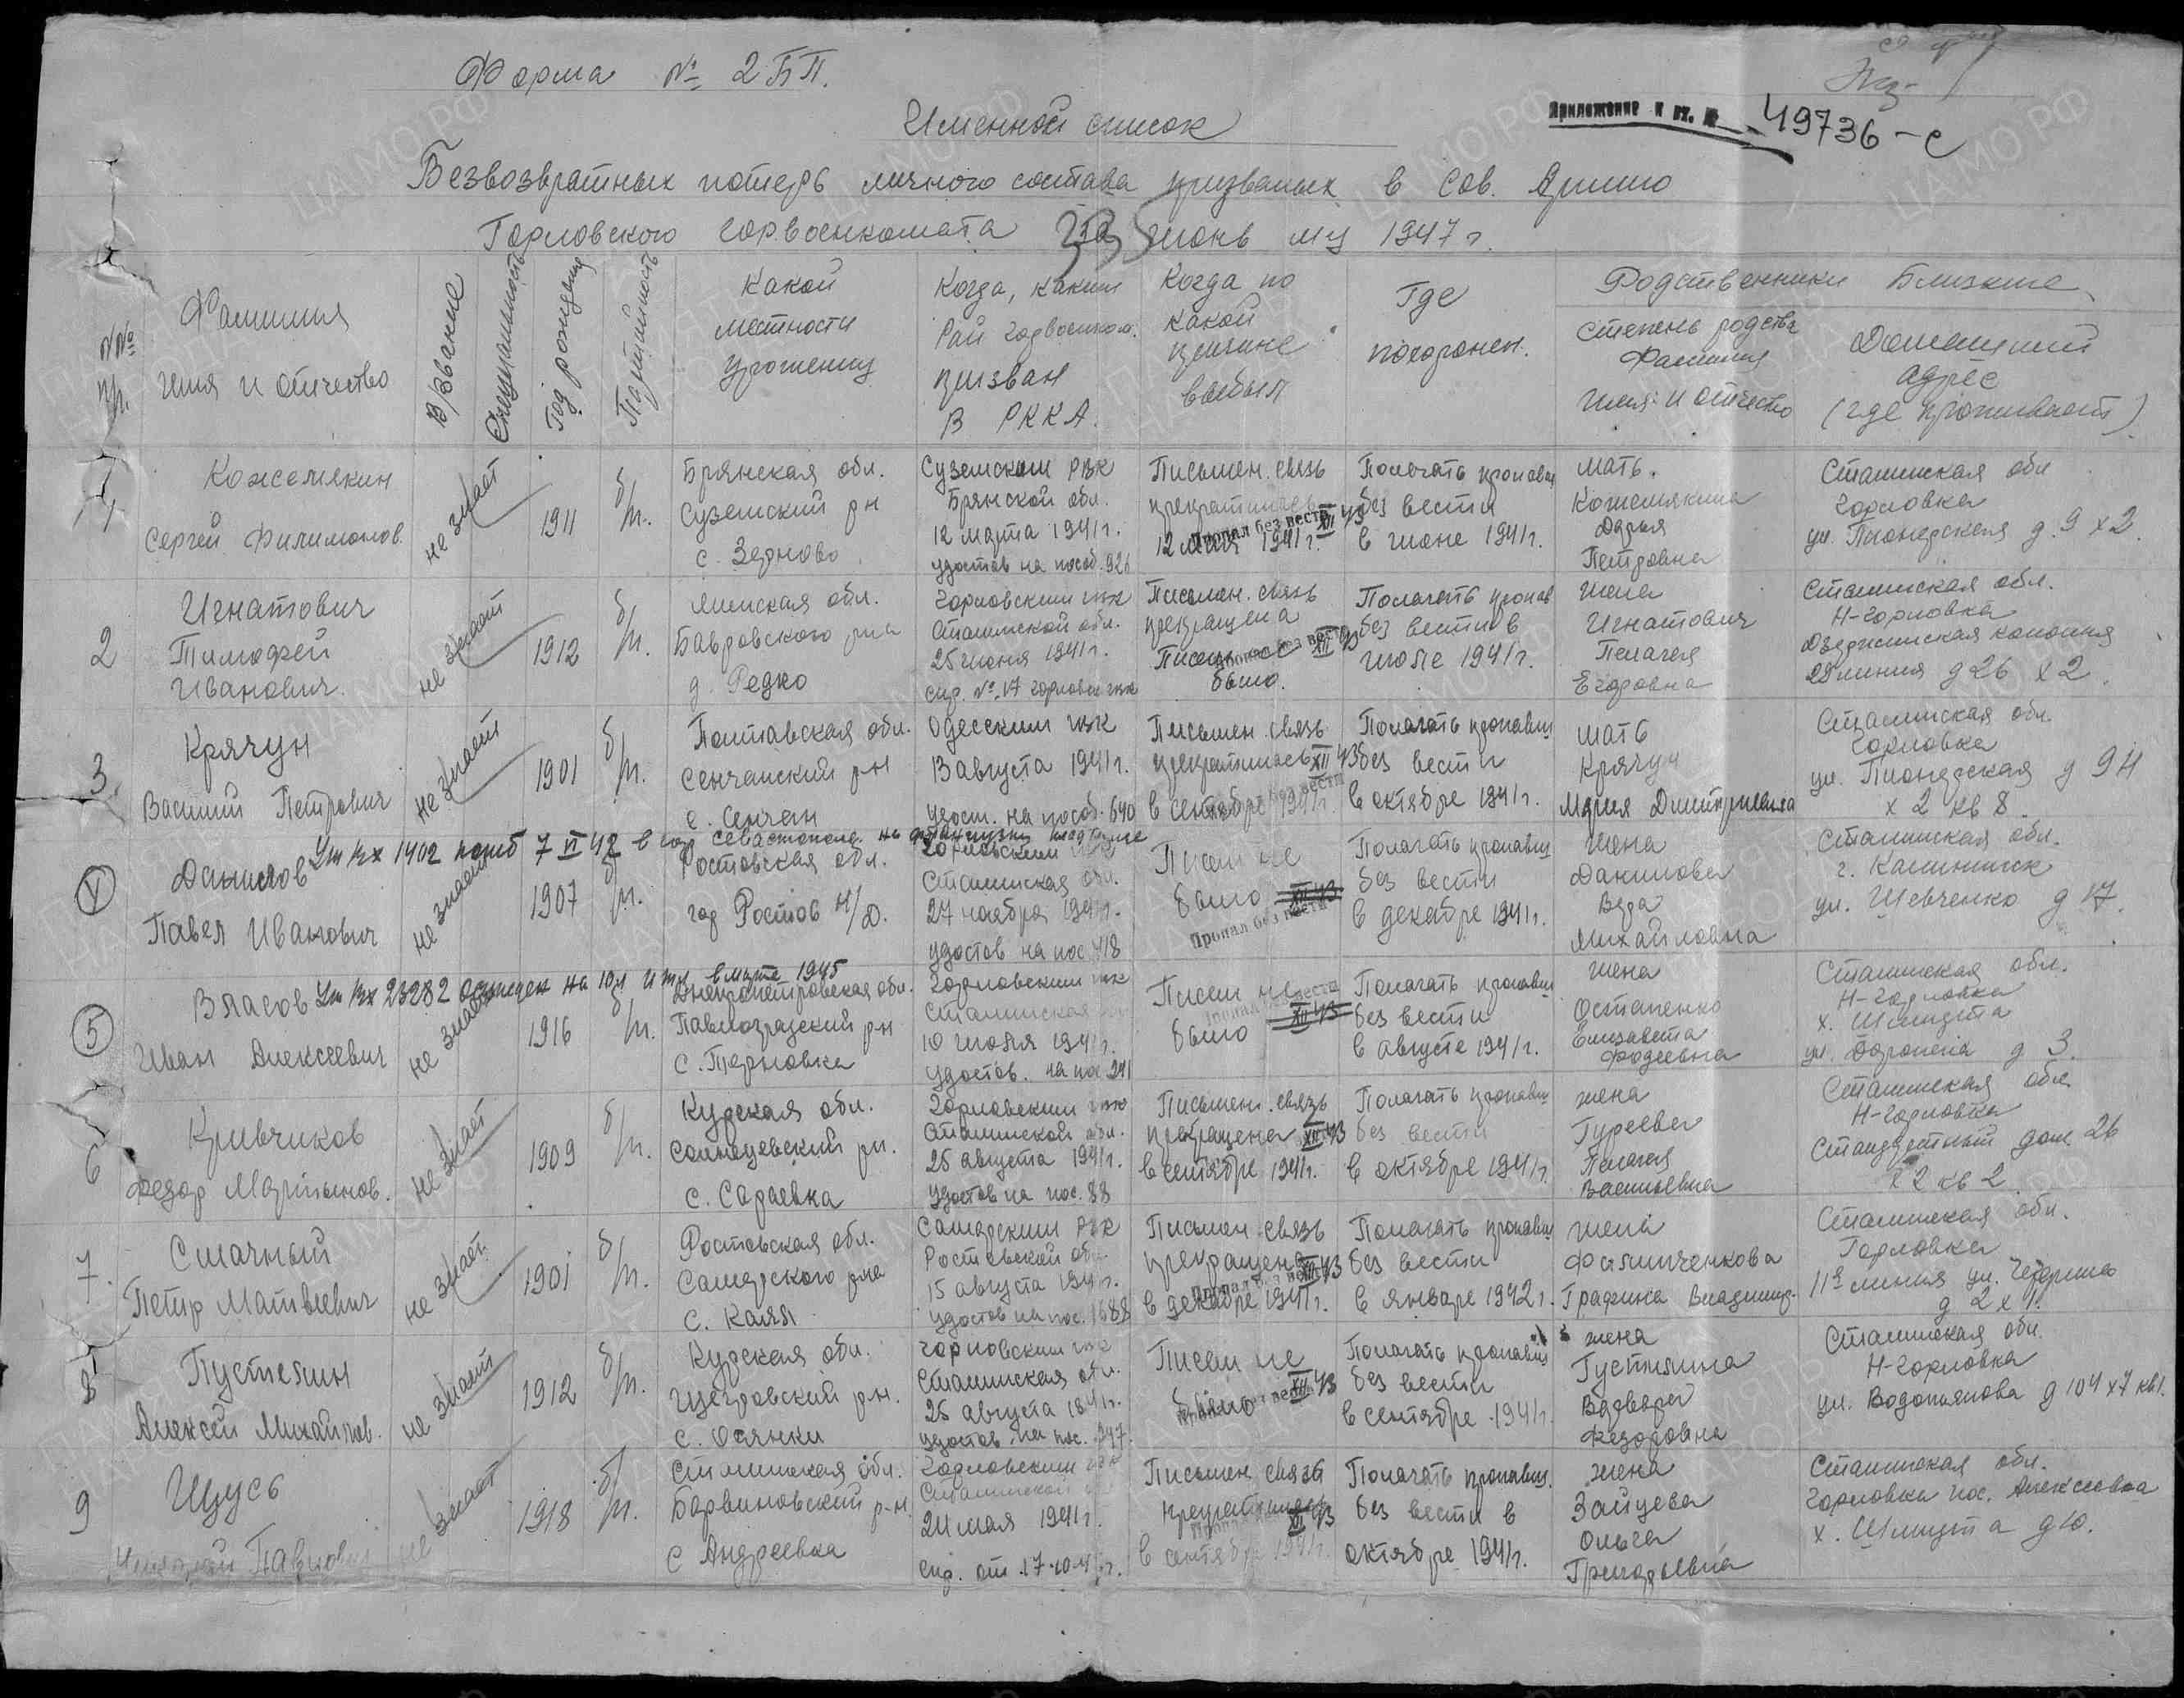 Форма № 2 БП.
Именной список
Приложение к вх. № 49736-с
Безвозвратных потерь личного состава призваных в Сов. Армию
Горловского горвоенкомата за июнь м-ц 1947 г.
№№ п/п.
Фамилия
имя и отчество
В/звание
Специальность
Год рождения
Партийность
Какой
местности
уроженец
Когда, каким
Рай горвоенком.
призван
в РККА.
Когда по
какой
причине
выбыл
Где
похоронен.
Родственники Близкие
Степень родства
Фамилия
имя и отчество
Домашний
адрес
(где проживает)
1
Кожемякин
Сергей Филимонов.
не знает
1911
б/п.
Брянская обл.
Суземский р-н
с. Зерново
Суземским РВК
Брянской обл.
12 марта 1941 г.
удостов на пособ. 926
Письмен. связь
прекратилась
Пропал без вести XII 43
12 мая 1941 г.
Полагать пропавш
без вести
в июне 1941 г.
мать.
Кожемякина
Дарья
Петровна
Сталинская обл
Горловка
ул. Пионерская д. 9 х 2.
2
Игнатович
Тимофей
Иванович.
не знает
1912
б/п.
обл.
д. Редко
Горловским гвк
Сталинской обл.
25 июня 1941 г.
спр. № 17 Горловск гвк
Письмен. связь
прекращена
Пропал без вести XII 43
Писем не
было.
Полагать пропав
без вести в
июле 1941 г.
жена
Игнатович
Пелагея
Егоровна
Сталинская обл.
Н-Горловка
Дзержинская колония
29 линия д 26 х 2.
3.
Крячун
Василий Петрович
не знает
1901
б/п.
Полтавская обл.
Сенчанский р-н
с. Сенчан
Одесским гвк
13 августа 1941 г.
удост. на пособ. 640
Письмен. связь
прекратилась XII 43
Пропал без вести
в сентябре 1941 г.
Полагать пропавш
без вести
в октябре 1941 г.
мать
Крячун
Мария Дмитриевна
Сталинская обл.
Горловка
ул. Пионерская д 94
х 2 кв 8.
4
Данилов
Ум вх 1402 погиб 7 VI 42 в гор Севастополе на французском кладбище
Павел Иванович
не знает
1907
б/п.
Ростовская обл.
гор Ростов н/Д.
Горловским гвк
Сталинская обл.
27 ноября 1941 г.
удостов на пос. 418
Писем не
было XII 43
Пропал без вести
Полагать пропавш
без вести
в декабре 1941 г.
жена
Данилова
Вера
Михайловна
Сталинская обл.
г. Калининск
ул. Шевченко д 17.
5
Власов
Ум вх 23282 осужден на 10 л итл в марте 1945
Иван Алексеевич
не знает
1916
б/п.
Днепропетровская обл.
Павлоградский р-н
с. Терновка
Горловским гвк
Сталинская обл
10 июля 1941 г.
удостов. на пос 241
Писем не
Пропал без вести
было XII 43
Полагать пропавш
без вести
в августе 1941 г.
жена
Остапенко
Елизавета
Фадеевна
Сталинская обл.
Н-Горловка
х. Шмидта
д 3.
6
Кривчиков
Федор Мартынов.
не знает
1909
б/п.
Курская обл.
Солнцевский р-н.
с. Сараевка
Горловским гвк
Сталинской обл.
25 августа 1941 г.
удостов на пос. 88
Письмен. связь
прекращена XII 43
в сентябре 1941 г.
Полагать пропавш
без вести
в октябре 1941 г.
жена
Гуреева
Пелагея
Васильевна
Сталинская обл
Н-Горловка
Стандартный дом. 26
х 2 кв 2.
7.
Смачный
Петр Матвеевич
не знает.
1901
б/п.
Ростовская обл.
Самарского р-на
с. Кагал
Самарским РВК
Ростовской обл
15 августа 1941 г.
удостов на пос. 1688
Письмен. связь
прекращена XII 43
Пропал без вести
в декабре 1941 г.
Полагать пропавш
без вести
в января 1942 г.
жена
Филимченкова
Графина Владимир.
Сталинская обл.
Горловка
11я линия ул.
д 2 х 1.
8
Пустелин
Алексей Михайлов.
не знает
1912
б/п.
Курская обл.
Щегровский р-н.
с. Осянки
Горловским гвк
Сталинская обл.
25 августа 1941 г.
удостов. на пос. 247.
Писем не
было XII 43
Пропал без вести
Полагать пропавш
без вести
в сентябре 1941 г.
жена
Густялина
Варвара
Федоровна
Сталинская обл.
Н-Горловка
ул. Водопьянова д 104 х 7 кв 1.
9
Щусь
Павлович
не знает
1918
б/п.
Сталинская обл.
Барвиновский р-н
с Андреевка
Горловским гвк
Сталинской обл
24 мая 1941 г.
спр. от 17.10.4 г.
Письмен. связь
прекратилась
Пропал без вести XII 43
в сентябре 1941 г.
Полагать пропавш.
без вести в
октябре 1941 г.
жена
Зайцева
Ольга
Григорьевна
Сталинская обл.
Горловка пос. Алексеевка
х. Шмидта д 10.